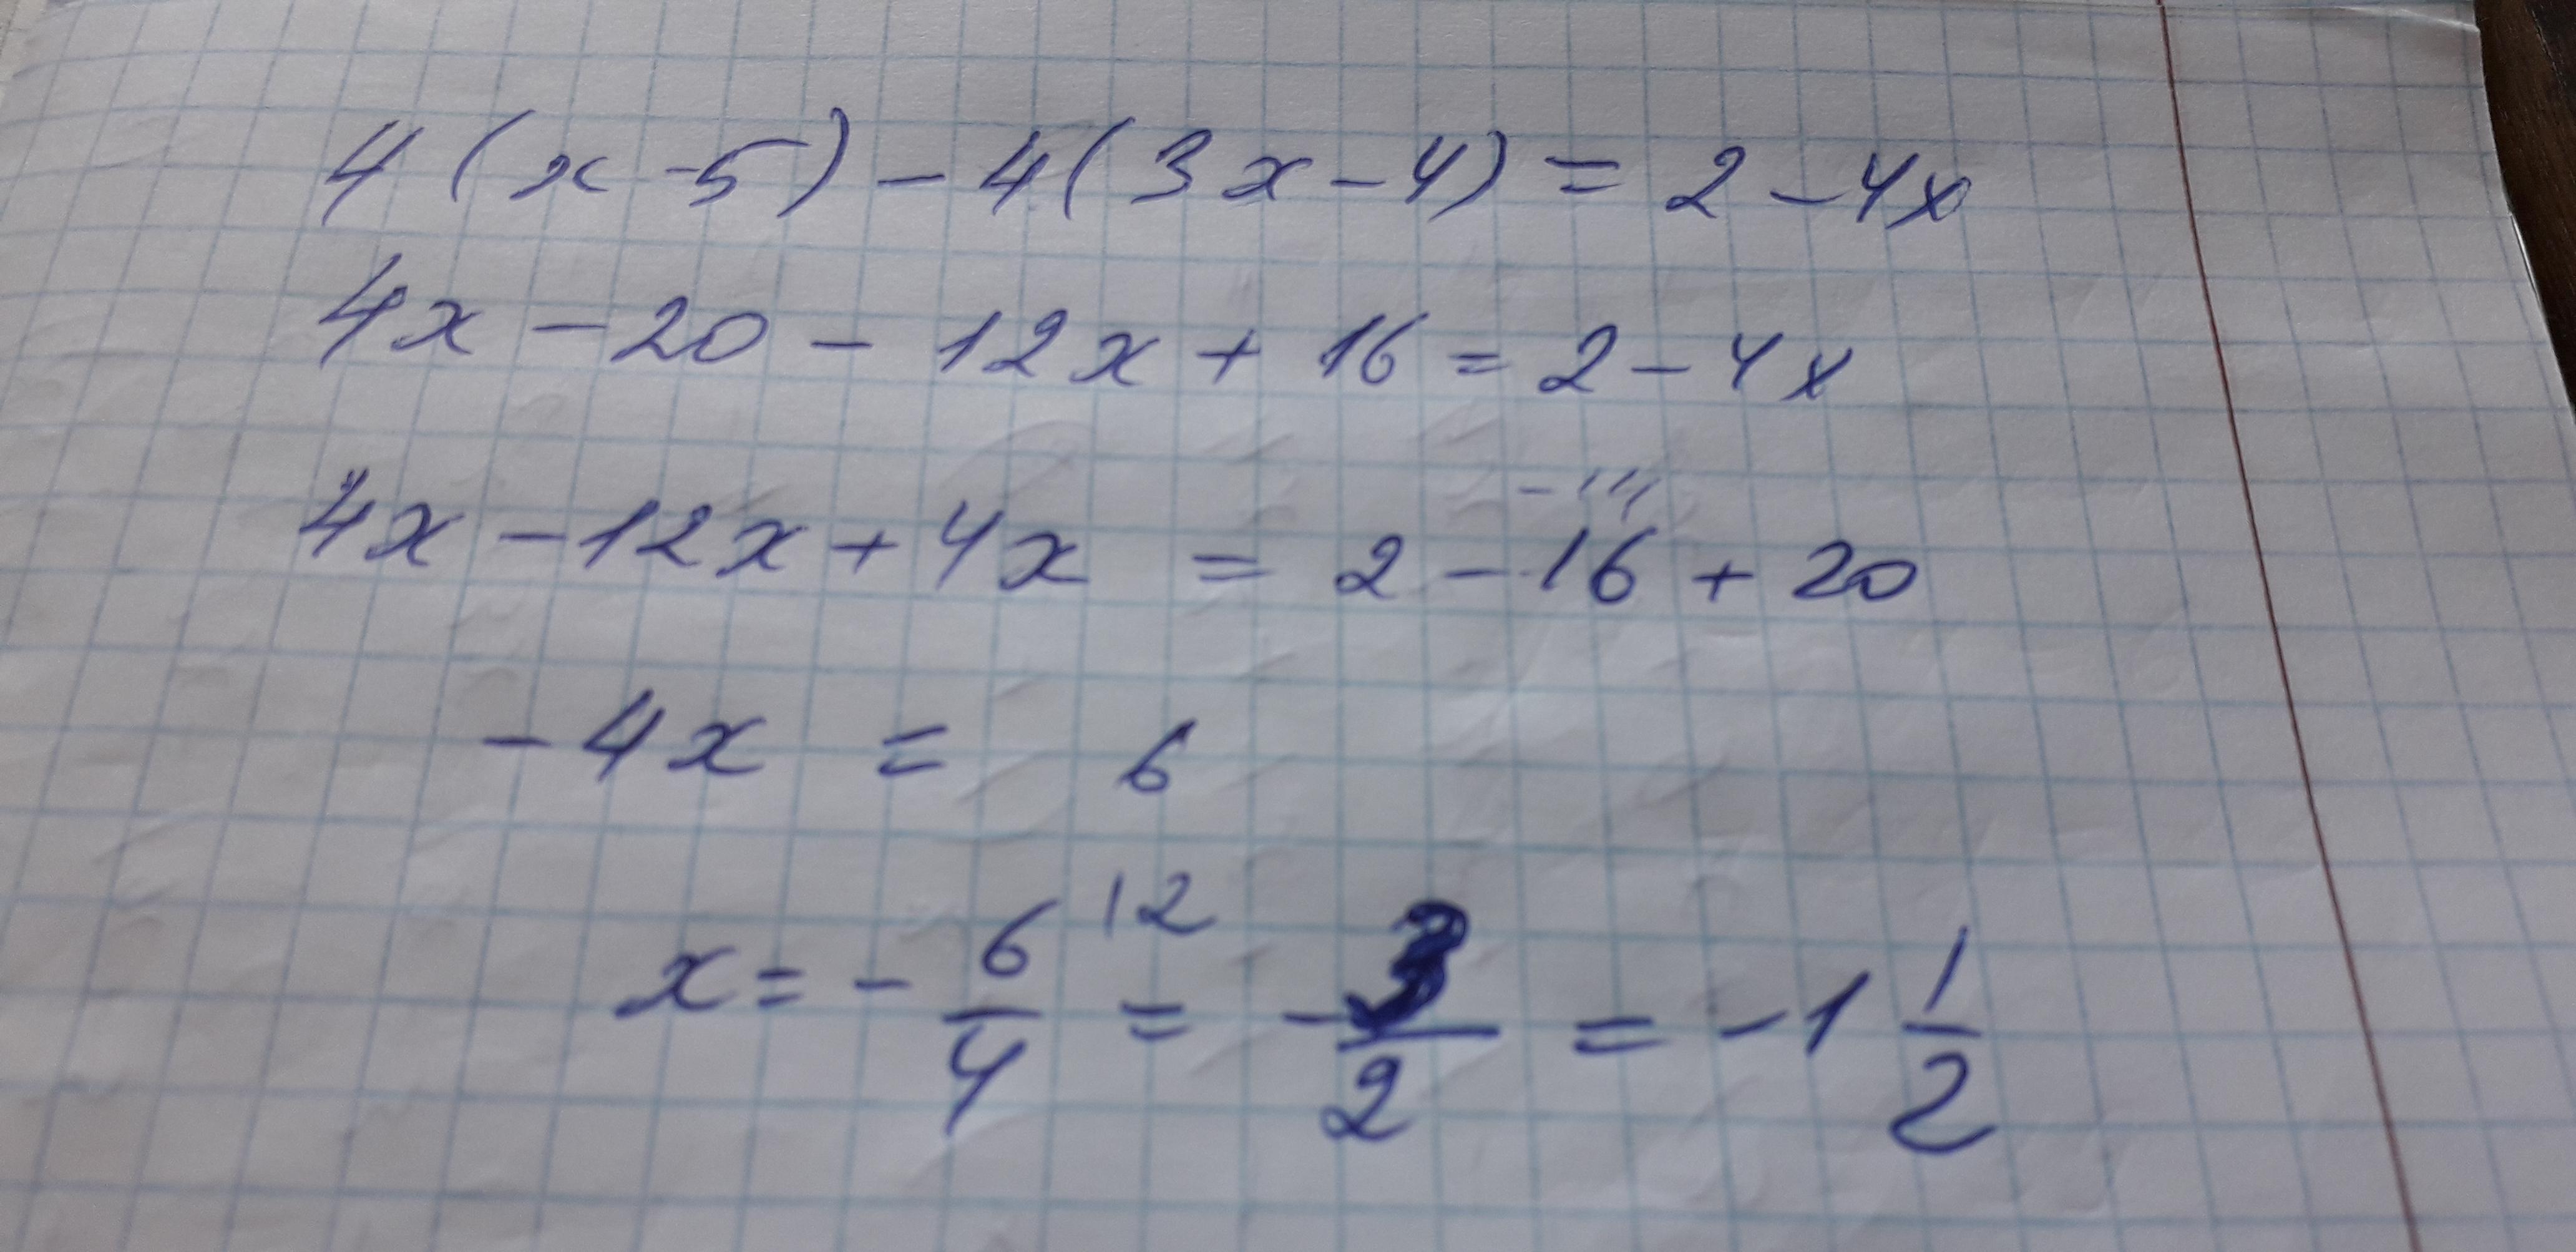 4(x-5)-4(3x-4)=2-4x
4x-20-12x+16=2-4x
4x-12x+4x=2-16+20
-4x=6
x=-6/4 |2 = -3/2 = -1 1/2